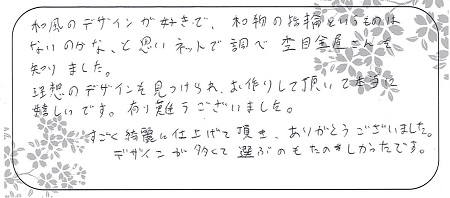 和風のデザインが好きで、和物の指輪というものは
ないのかな、と思いネットで調べ 杢目金屋さんを
知りました。
理想のデザインを見つけられ、お作りして頂いて本当に
嬉しいです。有り難うございました。
すごく綺麗に仕上げて頂き、ありがとうございました。
デザインが多くて選ぶのもたのしかったです。